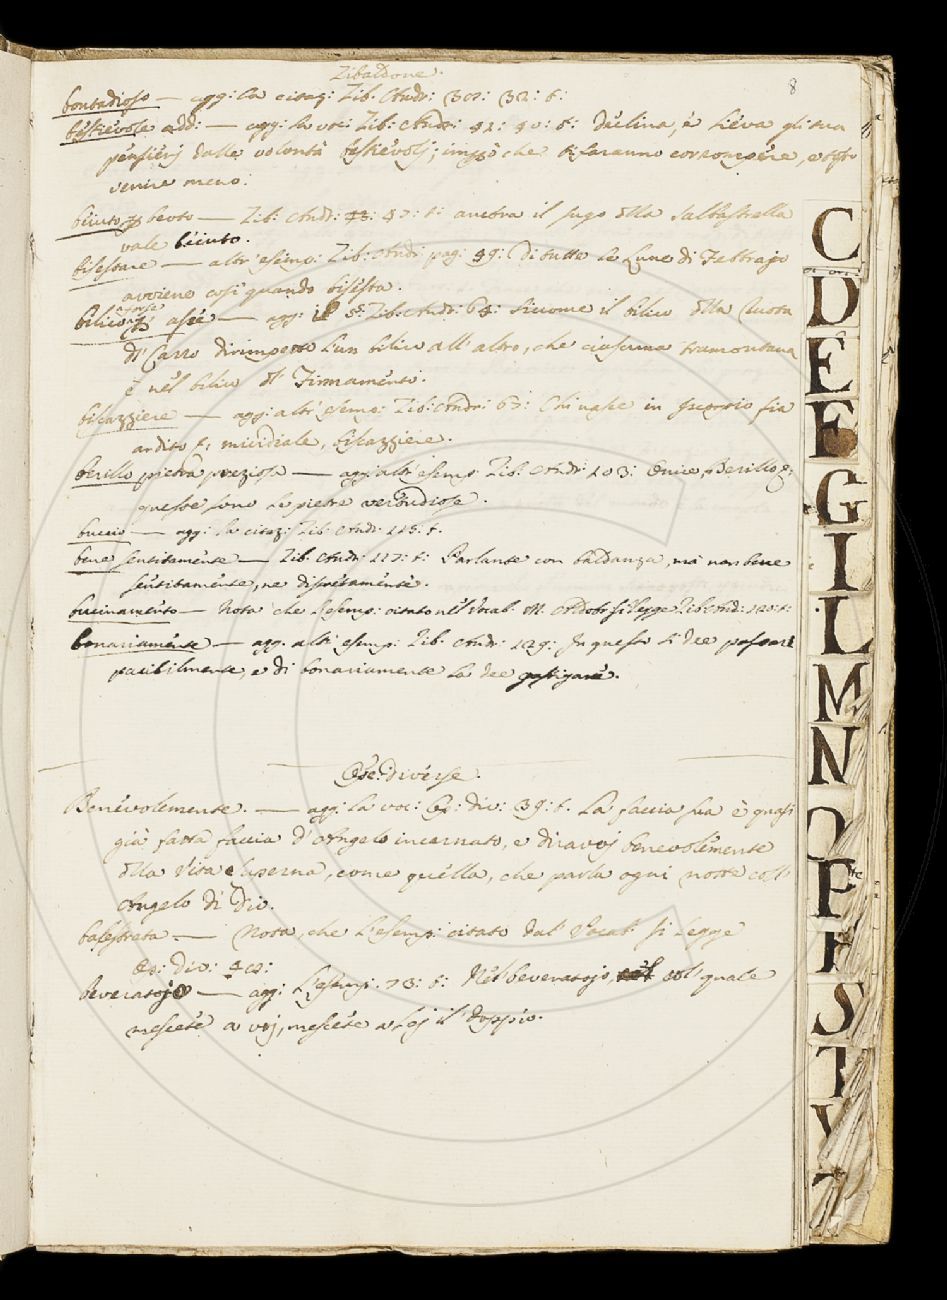 Zibaldone.
8
bontadioso — agg: la citaz: Zib: Andr: 32: t:
bestievole add: — agg: la voc: Zib: Andr: 42: t: declina, e lieva gli tua
pensierj dalle volontà bestievolj; che ti faranno corrompere, e
venire meno.
beiuto, beoto — Zib: Andr: 47: t: ancora il sugo della salbastrella
vale beiuto.
bisestare — altr'esemp: Zib: Andr: pag: 49: Di tutte le Lune di Febbrajo
avviene così quando bisesta.
bilico asse — agg: il 5: Zib: Andr: 64: siccome il bilico della Ruota
del Carro dirimpetto l'un bilico all'altro, che ciascuna tramontana
è nel bilico del Firmamento.
biscazziere — agg: altr'esemp: Zib: Andr: 67: Chi nasce in Iscorpio fia
ardito micidiale, biscazziere.
berillo pietra preziosa — agg: altr'esemp: Zib: Andr: 103: Onice, Berillo
queste sono le pietre
buccio — agg: la citaz: Zib: Andr: 115: t.
bene sentitamente — Zib: Andr: 117: t: Parlante con baldanza, ma non bene
sentitamente, ne discretamente.
bucinamento — Nota che l'esemp: citato nel Vocab: M. Aldobr: si legge Zib: And: 120: t:
bonariamente — agg: altr'esemp: Zib: Andr: 129: In questa si dee passare
pacibilmente, e di bonariamente la dee gastigare.
Op: diverse.
Benevolemente. — agg: la voc: Op: div: 39: t. La faccia sua è quasi
già fatta faccia d'Angelo incarnato, e diravvj benevolemente
della Vita eterna, come quella, che parla ogni notte coll'
Angelo di Dio.
balestrata — Nota, che l'esemp: citato dal Vocab: si legge
Op: div:
beveratojo — agg: l'esemp: 73: t: Nel beveratojo, col quale
mescete a voj, mescete a Lej il doppio.
C
D
E
F
G
I
L
M
N
O
P
S
T